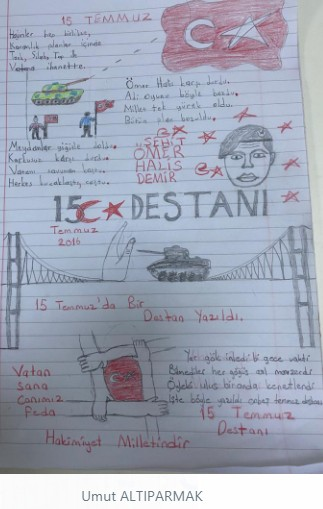 15 TEMMUZ
Hainler hep birlikte,
Karanlık planlar içinde
Tank, Silah, Top ile
Vatana ihanette.
Ömer Halis karşı durdu.
Alı oyunu böyle bozdu.
Millet tek yürek oldu.
Bütün plan bozuldu.
Meydanlar yiğitle doldu.
Korkusuz karşı durdu.
Vatanı savunan
Herkes kucaklaştı,
ŞEHİT
ÖMER
HALİS
DEMİR
15 DESTANI
Temmuz
2016
15 Temmuz'da Bir
Destan Yazıldı.
Vatan
sana
Canımız
Feda
Yeri göğü inledi bir gece vakti
her göğüs
ulus bir anda kenetlendi
İşte böyle yazıldı onbeş temmuz destanı
15 Temmuz
Destanı
Hakimiyet Milletindir
Umut ALTIPARMAK